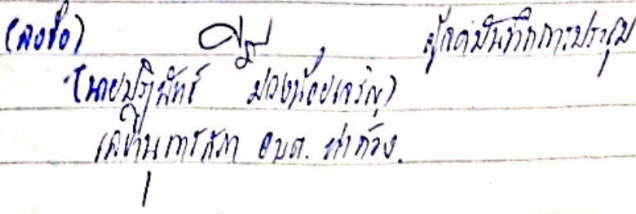 (ลงชื่อ) ผู้จดบันทึกการประชุม
(นายปฏิพัทธ์ ม่วงน้อยเจริญ)
เลขานุการสภา อบต. ท่ากว้าง.